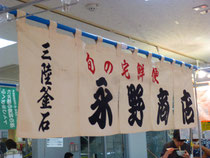 三陸釜石
旬の宅鮮便
永野商店